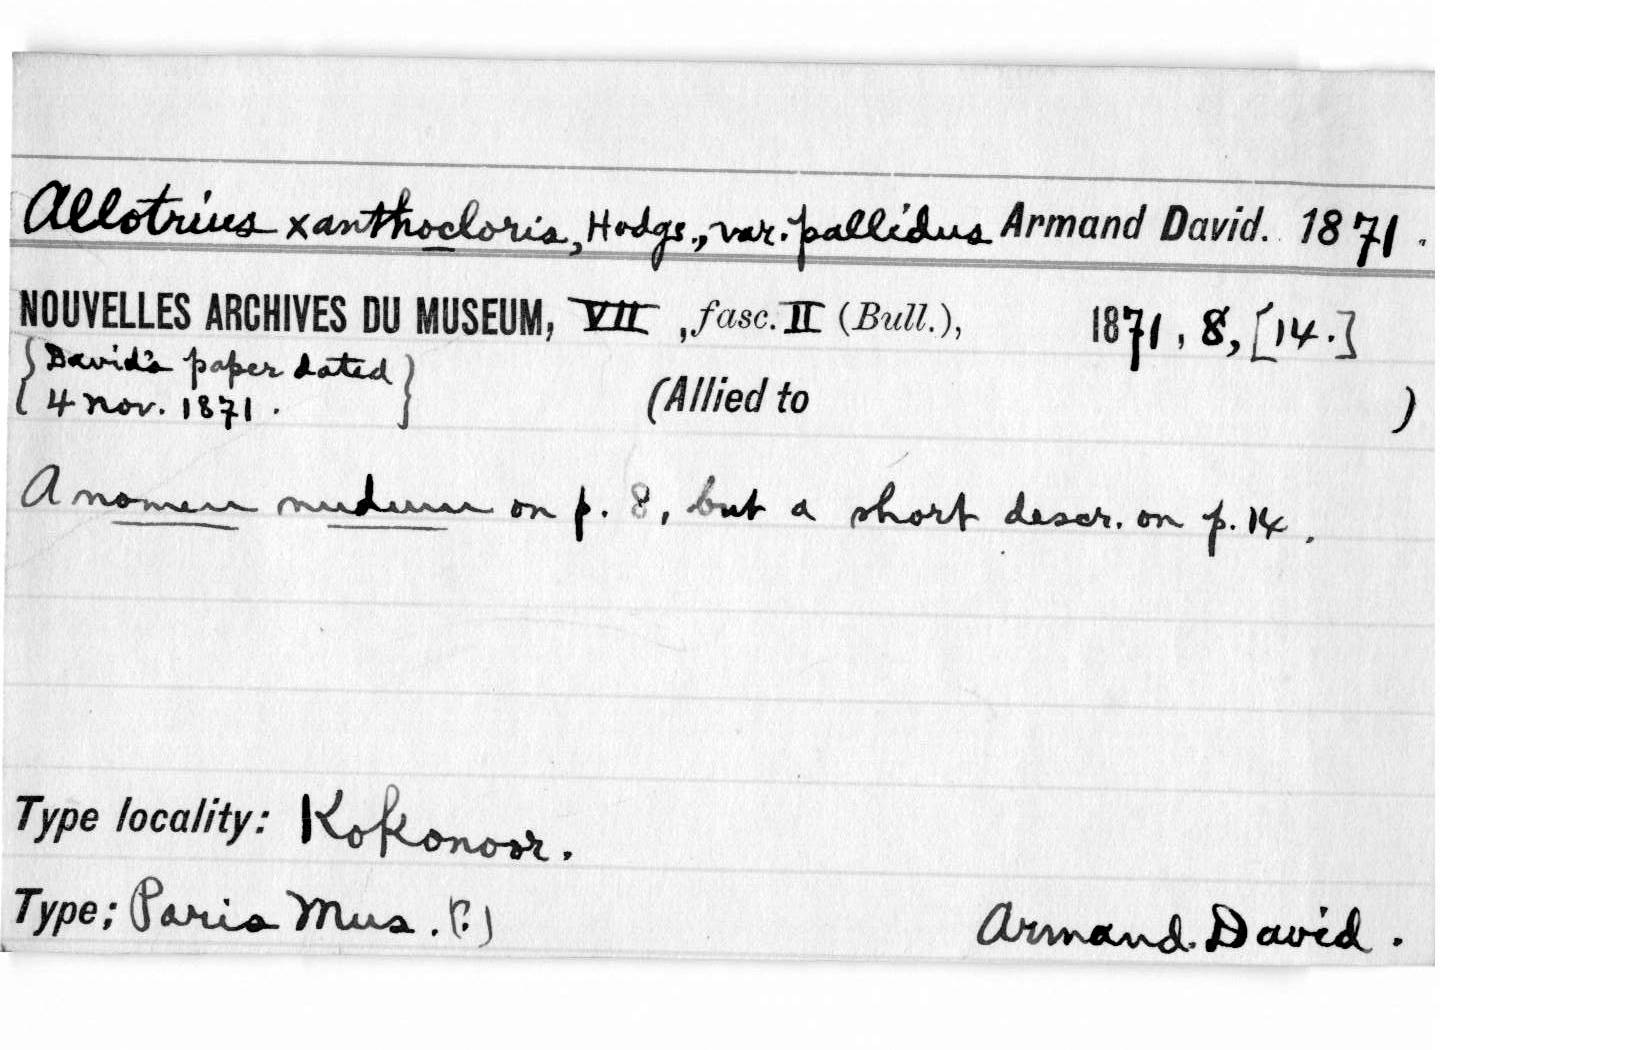 Allotrius xanthocloris, Hodgs., var. pallidus Armand David. 1871.
NOUVELLES ARCHIVES DU MUSEUM, VII, fasc. II (Bull.), 1871, 8, [14.]
{David's paper dated
4 Nov. 1871.}
(Allied to )
A nomen nudum on p. 8, but a short descr. on p. 14.
Type locality: Kokonoor.
Type; Paris Mus. (?)
Armand David.